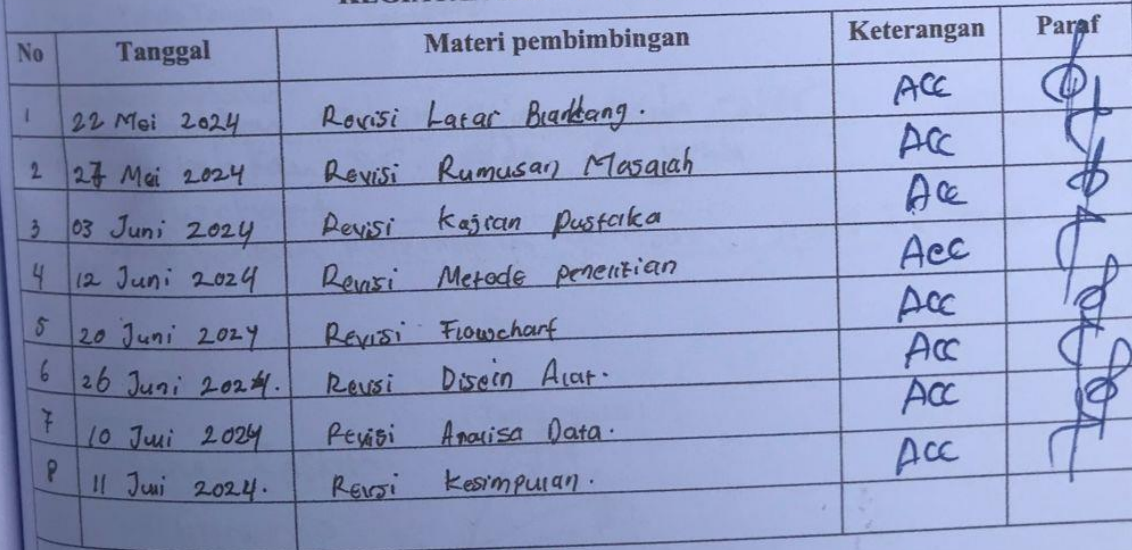 No Tanggal Materi pembimbingan Keterangan Paraf
1 22 Mei 2024 Revisi Latar Blakang. ACC
2 27 Mei 2024 Revisi Rumusan Masalah ACC
3 03 Juni 2024 Revisi Kajian Pustaka ACC
4 12 Juni 2024 Revisi Metode penelitian ACC
5 20 Juni 2024 Revisi Flowchart ACC
6 26 Juni 2024. Revisi Disein Alat. ACC
7 10 Juli 2024 Revisi Analisa Data. ACC
8 11 Juli 2024. Revisi Kesimpulan. ACC